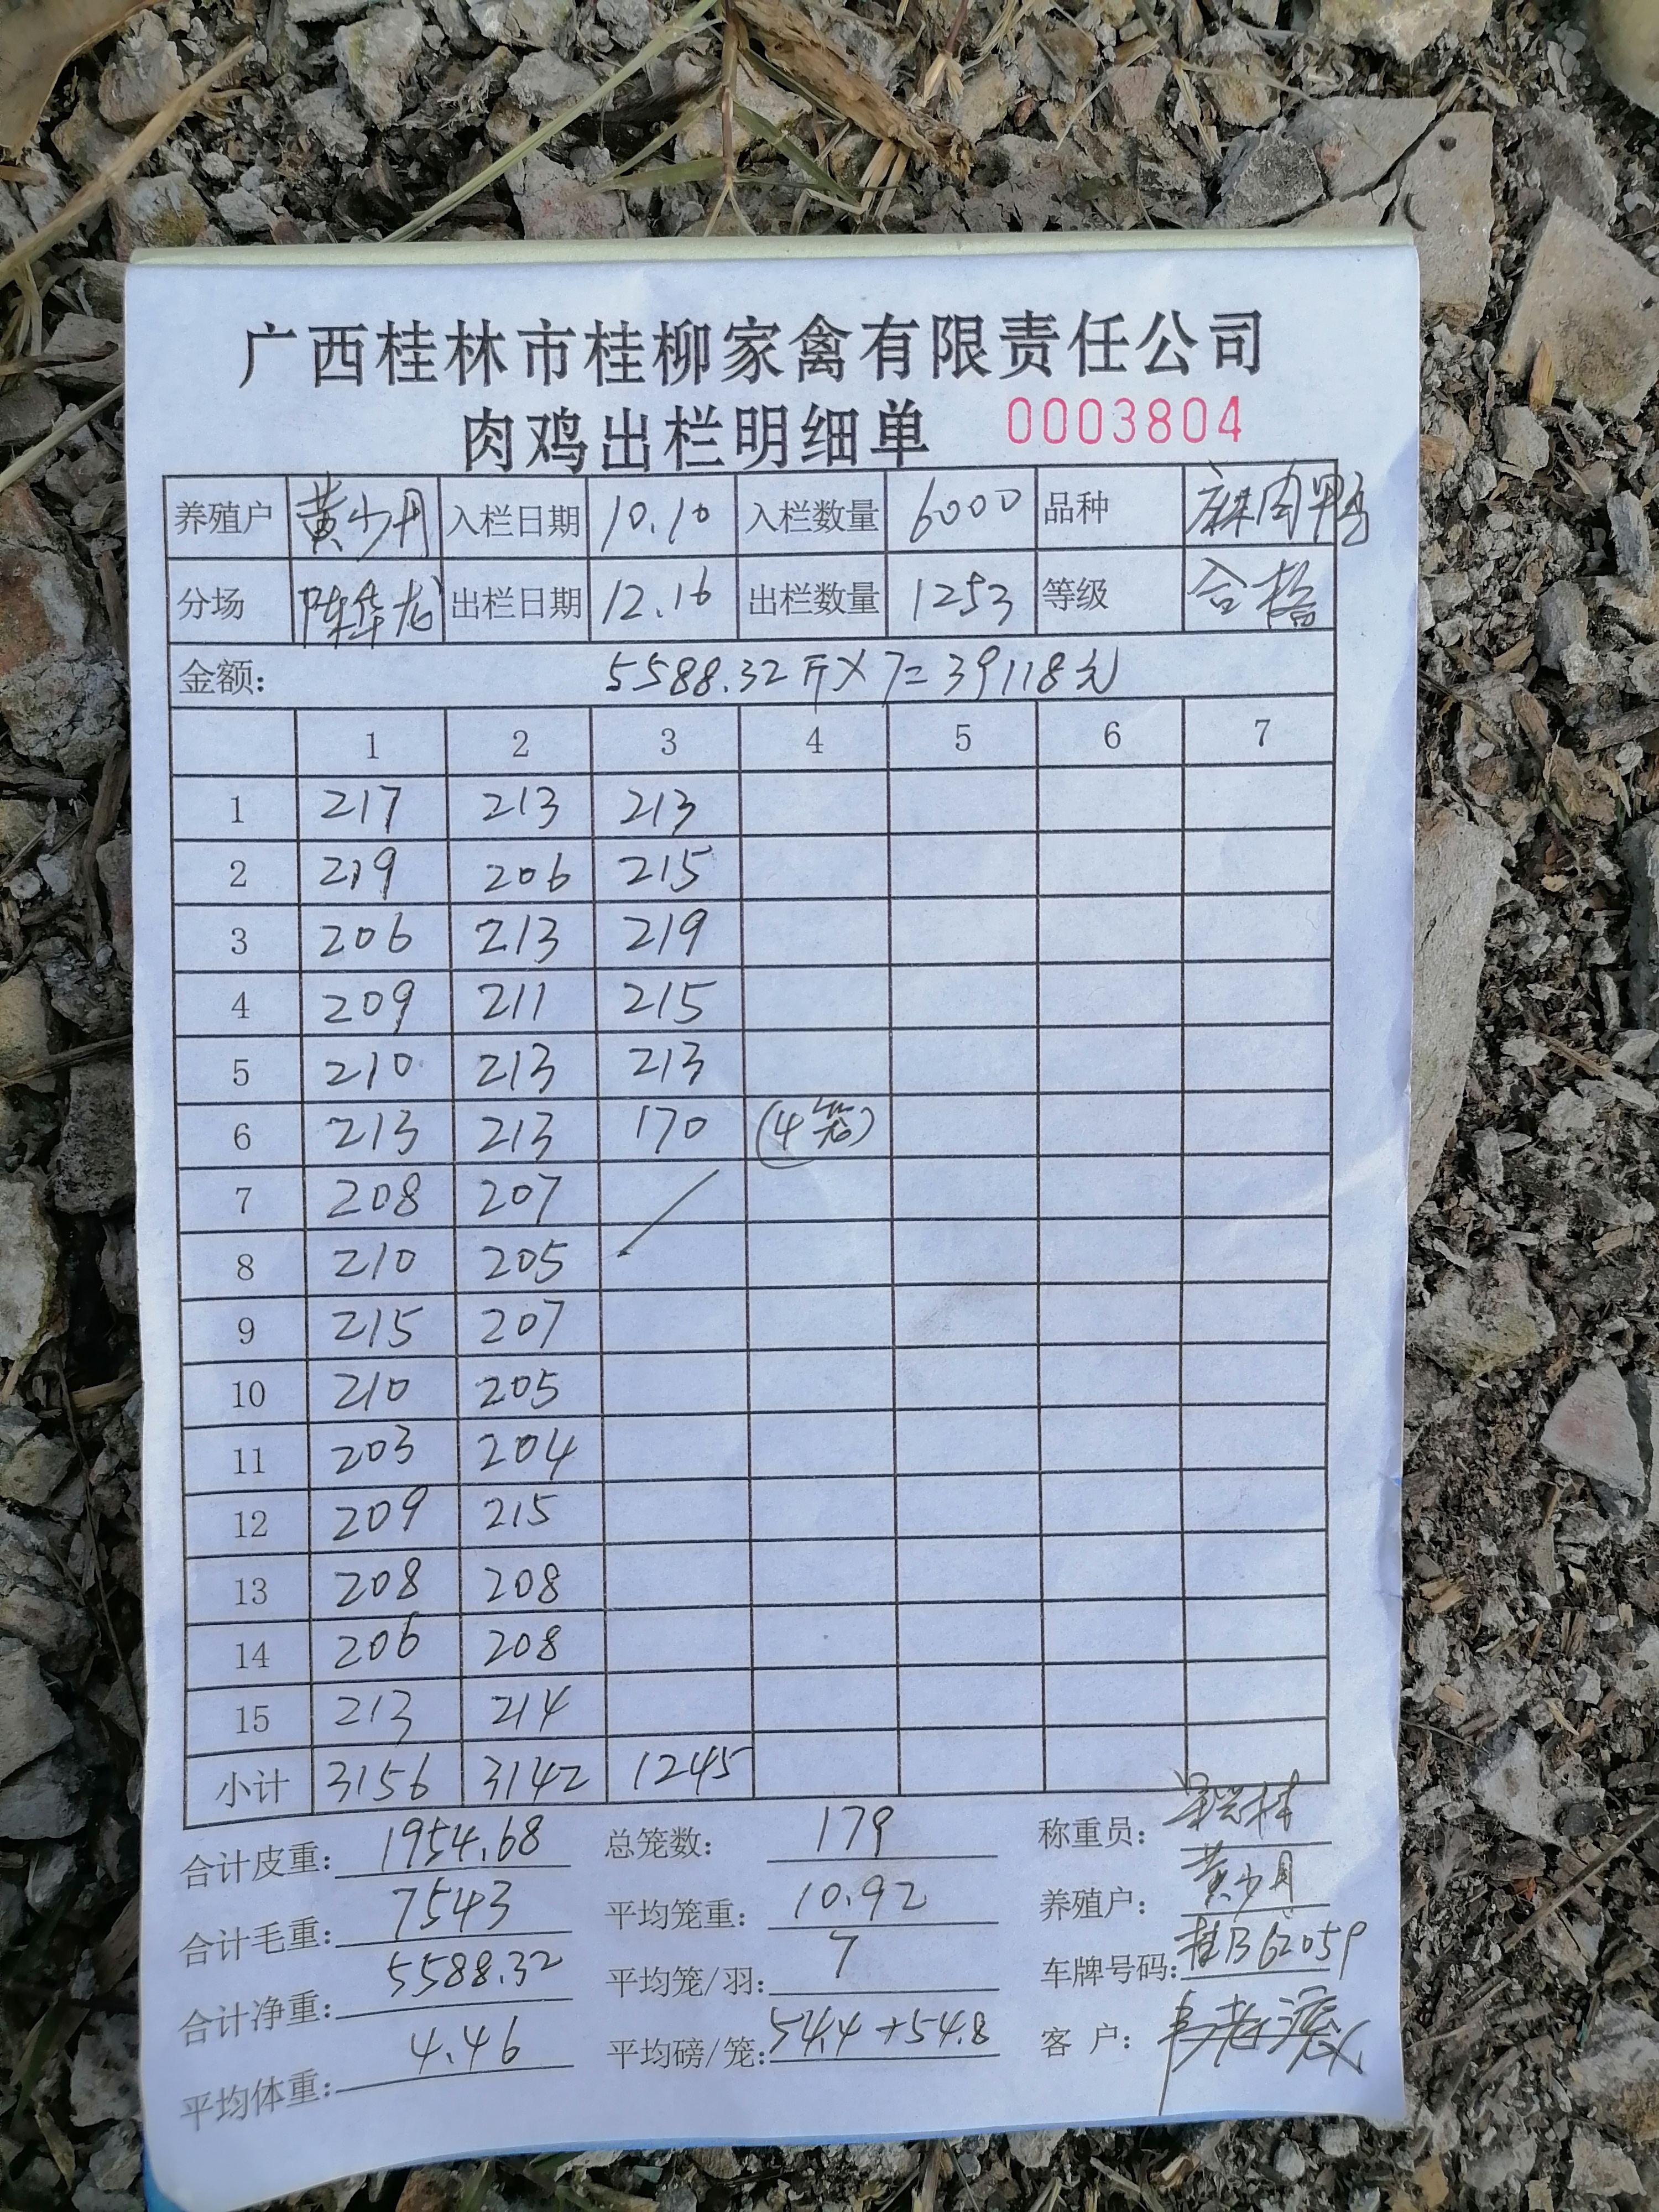 广西桂林市桂柳家禽有限责任公司
肉鸡出栏明细单 0003804
养殖户 黄少月 入栏日期 10.10 入栏数量 6000 品种 麻肉鸭
分场 陈华龙 出栏日期 12.16 出栏数量 1253 等级 合格
金额: 5588.32斤×7=39118元
1 2 3 4 5 6 7
1 217 213 213
2 219 206 215
3 206 213 219
4 209 211 215
5 210 213 213
6 213 213 170 (4笼)
7 208 207
8 210 205
9 215 207
10 210 205
11 203 204
12 209 215
13 208 208
14 206 208
15 213 214
小计 3156 3142 1245
合计皮重: 1954.68 总笼数: 179 称重员:
合计毛重: 7543 平均笼重: 10.92 养殖户: 黄少月
合计净重: 5588.32 平均笼/羽: 7 车牌号码: 桂B62059
平均体重: 4.46 平均磅/笼: 54.4+54.8 客户: